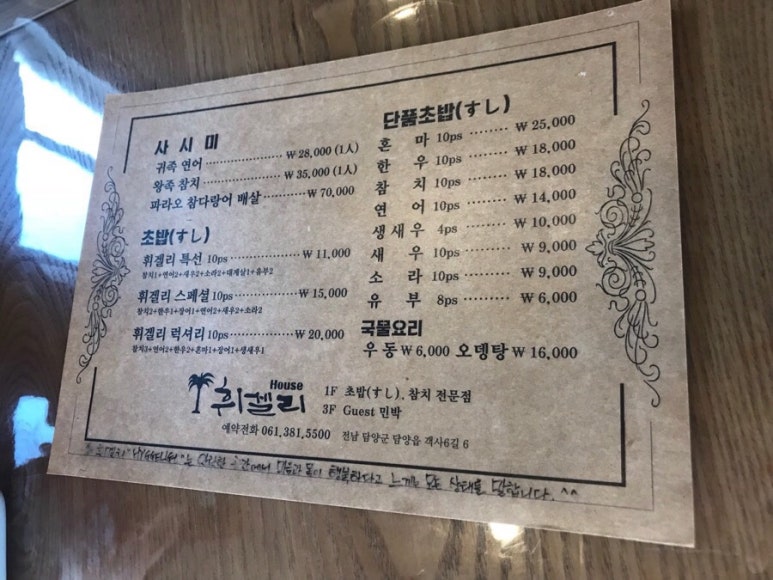 사시미
귀족 연어 ................ ₩ 28,000 (1人)
왕족 참치 ................ ₩ 35,000 (1人)
파라오 참다랑어 배살 ........ ₩ 70,000
초밥(すし)
휘겔리 특선 10ps ............ ₩ 11,000
참치1+연어2+새우2+소라2+대게살1+유부2
휘겔리 스페셜 10ps ............ ₩ 15,000
참치2+한우1+장어1+연어2+새우2+소라2
휘겔리 럭셔리 10ps ............ ₩ 20,000
참치3+연어2+한우2+혼마1+장어1+생새우1
단품초밥(すし)
혼마 10ps ........ ₩ 25,000
한우 10ps ........ ₩ 18,000
참치 10ps ........ ₩ 18,000
연어 10ps ........ ₩ 14,000
생새우 4ps ........ ₩ 10,000
새우 10ps ........ ₩ 9,000
소라 10ps ........ ₩ 9,000
유부 8ps ........ ₩ 6,000
국물요리
우동 ₩ 6,000 오뎅탕 ₩ 16,000
휘겔리 House
1F 초밥(すし), 참치 전문점
3F Guest 민박
예약전화 061.381.5500 전남 담양군 담양읍 객사6길 6
"는 마음과 몸이 행복하다고 느끼는 모든 상태를 말합니다. ^^